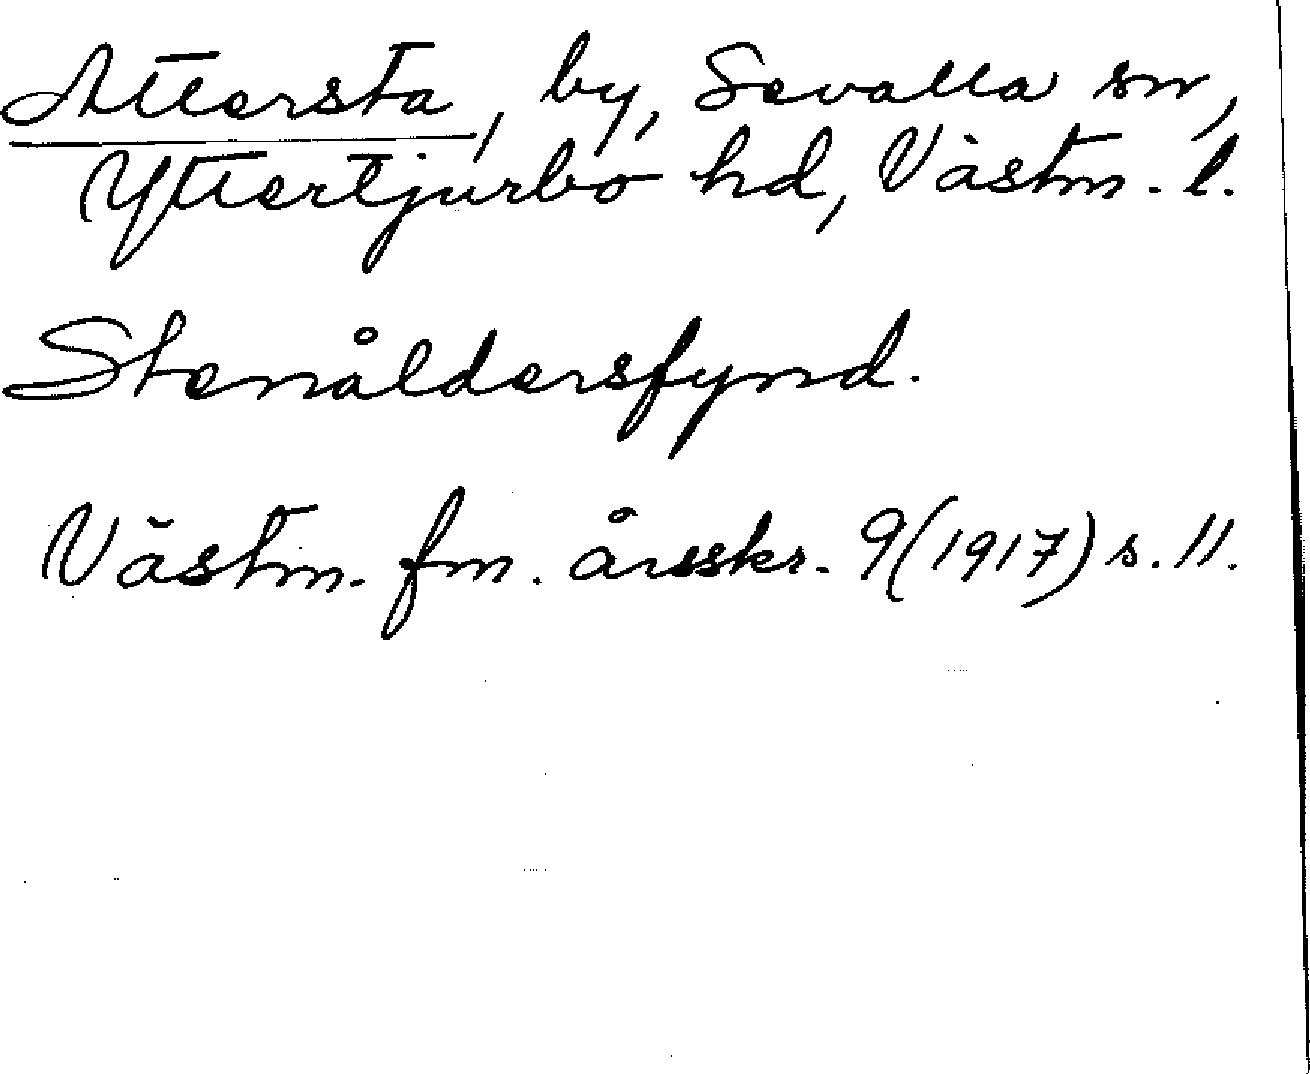 Attersta, by, Sevalla sn,
Yttertjurbo hd, Västm. l.
Stenåldersfynd.
Västm. fm. årsskr. 9(1917) s. 11.